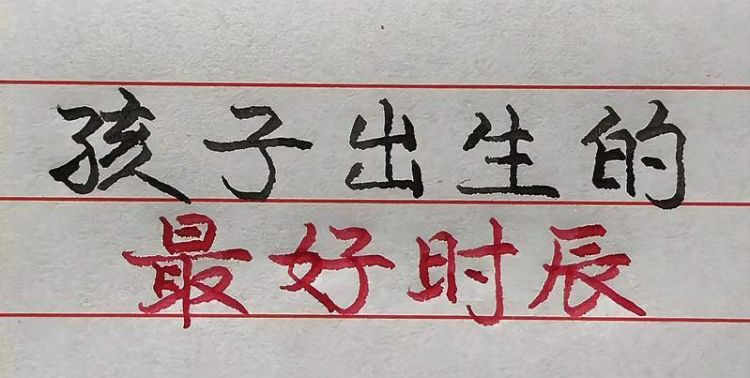 孩子出生的
最好时辰